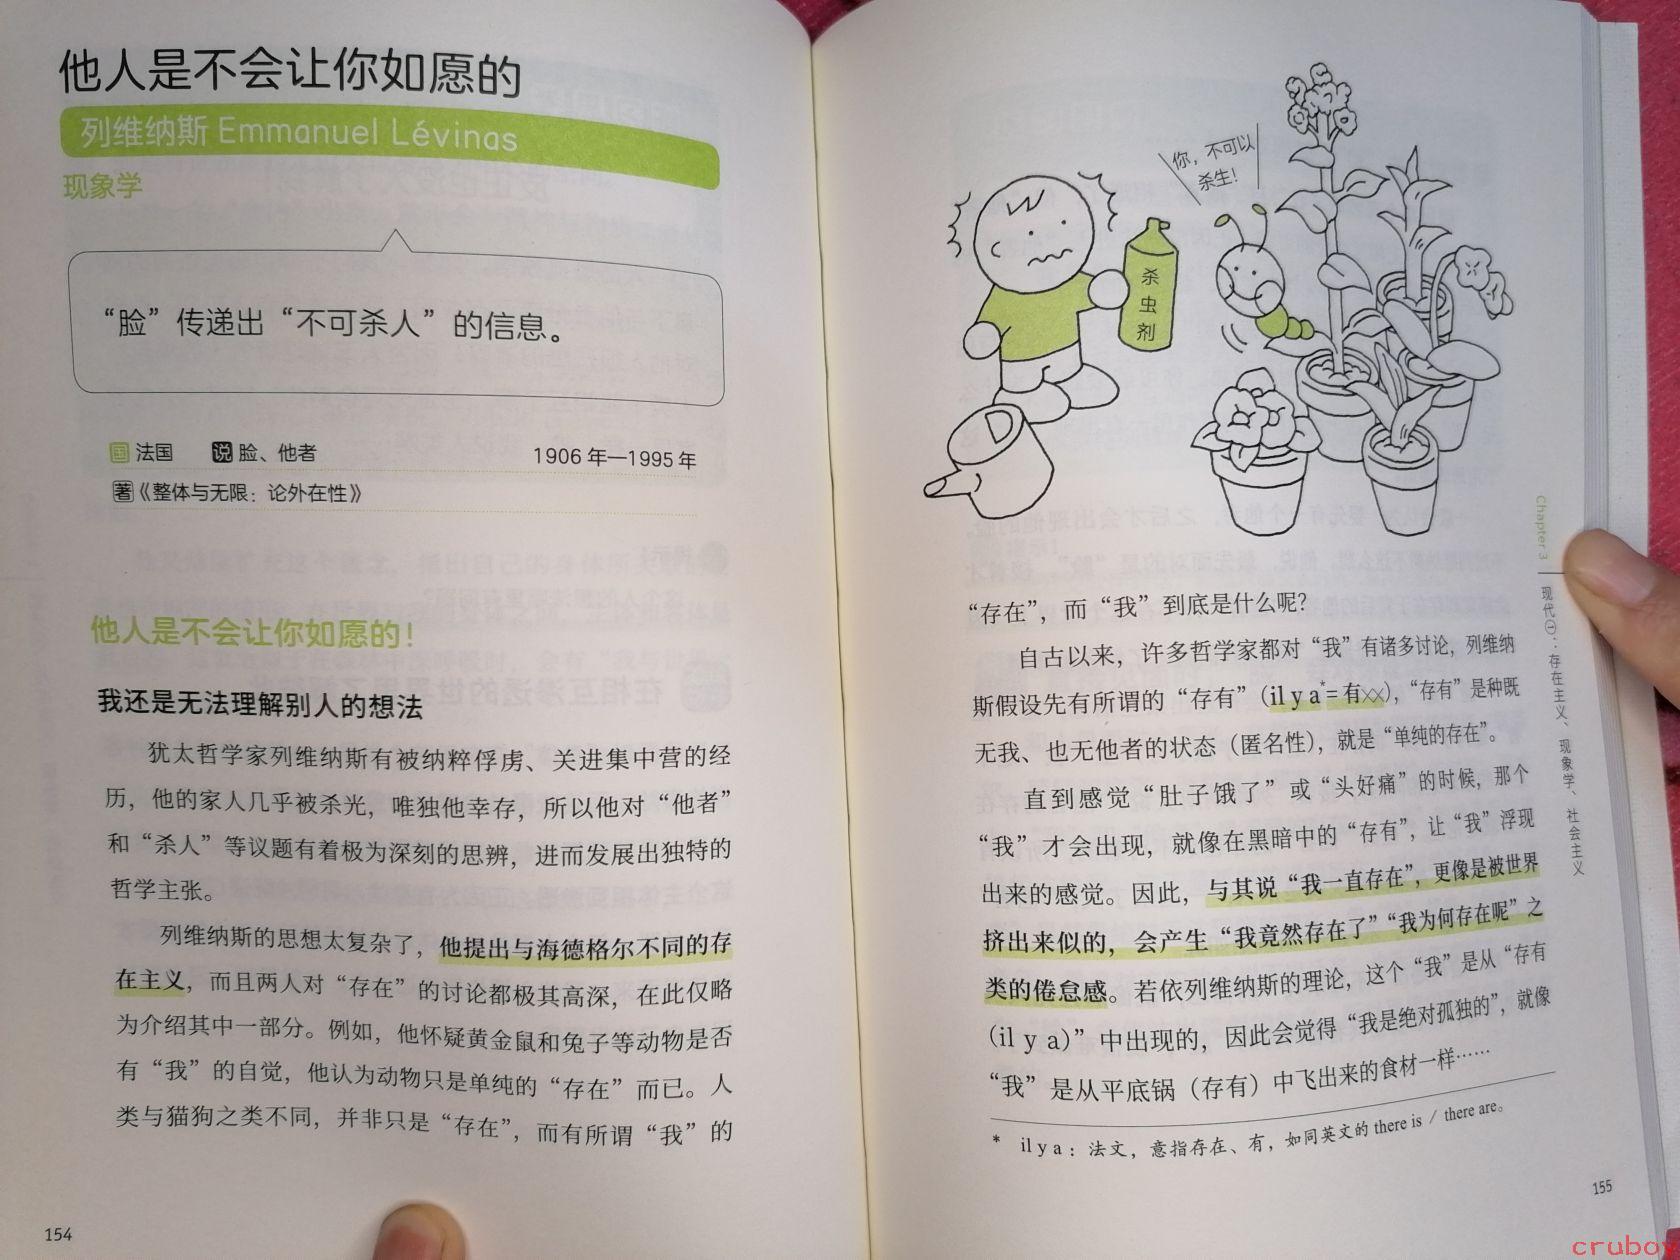 他人是不会让你如愿的
列维纳斯 Emmanuel Lévinas
现象学
“脸”传递出“不可杀人”的信息。
国 法国 说 脸、他者 1906 年—1995 年
著《整体与无限：论外在性》
他人是不会让你如愿的！
我还是无法理解别人的想法
犹太哲学家列维纳斯有被纳粹俘虏、关进集中营的经
历，他的家人几乎被杀光，唯独他幸存，所以他对“他者”
和“杀人”等议题有着极为深刻的思辨，进而发展出独特的
哲学主张。
列维纳斯的思想太复杂了，他提出与海德格尔不同的存
在主义，而且两人对“存在”的讨论都极其高深，在此仅略
为介绍其中一部分。例如，他怀疑黄金鼠和兔子等动物是否
有“我”的自觉，他认为动物只是单纯的“存在”而已。人
类与猫狗之类不同，并非只是“存在”，而有所谓“我”的
154
你，不可以
杀生！
杀
虫
剂
“存在”，而“我”到底是什么呢？
自古以来，许多哲学家都对“我”有诸多讨论，列维纳
斯假设先有所谓的“存有”（il y a*=有××），“存有”是种既
无我、也无他者的状态（匿名性），就是“单纯的存在”。
直到感觉“肚子饿了”或“头好痛”的时候，那个
“我”才会出现，就像在黑暗中的“存有”，让“我”浮现
出来的感觉。因此，与其说“我一直存在”，更像是被世界
挤出来似的，会产生“我竟然存在了”“我为何存在呢”之
类的倦怠感。若依列维纳斯的理论，这个“我”是从“存有
（il y a）”中出现的，因此会觉得“我是绝对孤独的”，就像
“我”是从平底锅（存有）中飞出来的食材一样……
* il y a：法文，意指存在、有，如同英文的 there is / there are。
Chapter 3
现代①：存在主义、现象学、社会主义
155
cruboy